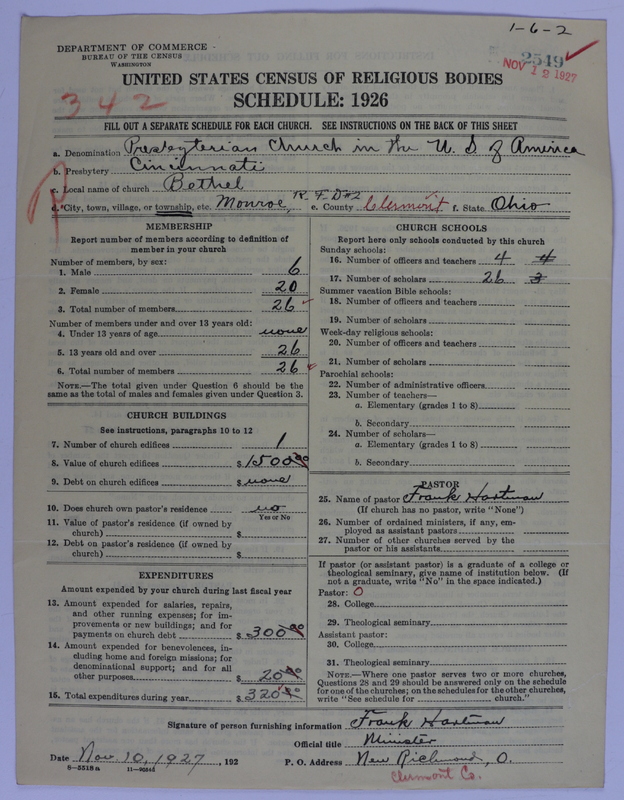 1-6-2
DEPARTMENT OF COMMERCE
BUREAU OF THE CENSUS
WASHINGTON
2549
NOV 12 1927
UNITED STATES CENSUS OF RELIGIOUS BODIES
342
SCHEDULE: 1926
FILL OUT A SEPARATE SCHEDULE FOR EACH CHURCH. SEE INSTRUCTIONS ON THE BACK OF THIS SHEET
a. Denomination Presbyterian Church in the U. S. of America
b. Presbytery Cincinnati
c. Local name of church Bethel
d. *City, town, village, or township, etc. Monroe, R. F. D #2 e. County Clermont f. State Ohio
MEMBERSHIP
Report number of members according to definition of
member in your church
Number of members, by sex:
1. Male 6
2. Female 20
3. Total number of members 26
Number of members under and over 13 years old:
4. Under 13 years of age none
5. 13 years old and over 26
6. Total number of members 26
NOTE.—The total given under Question 6 should be the
same as the total of males and females given under Question 3.
CHURCH BUILDINGS
See instructions, paragraphs 10 to 12
7. Number of church edifices 1
8. Value of church edifices $ 1500 00
9. Debt on church edifices $ none
10. Does church own pastor's residence? no
Yes or No
11. Value of pastor's residence (if owned by
church) $
12. Debt on pastor's residence (if owned by
church) $
EXPENDITURES
Amount expended by your church during last fiscal year
13. Amount expended for salaries, repairs,
and other running expenses; for im-
provements or new buildings; and for
payments on church debt $ 300 00
14. Amount expended for benevolences, in-
cluding home and foreign missions; for
denominational support; and for all
other purposes $ 20 00
15. Total expenditures during year $ 320 00
CHURCH SCHOOLS
Report here only schools conducted by this church
Sunday schools:
16. Number of officers and teachers 4 4
17. Number of scholars 26 3
Summer vacation Bible schools:
18. Number of officers and teachers
19. Number of scholars
Week-day religious schools:
20. Number of officers and teachers
21. Number of scholars
Parochial schools:
22. Number of administrative officers
23. Number of teachers—
a. Elementary (grades 1 to 8)
b. Secondary
24. Number of scholars—
a. Elementary (grades 1 to 8)
b. Secondary
PASTOR
25. Name of pastor Frank Hartman
(If church has no pastor, write "None")
26. Number of ordained ministers, if any, em-
ployed as assistant pastors
27. Number of other churches served by the
pastor or his assistants
If pastor (or assistant pastor) is a graduate of a college or
theological seminary, give name of institution below. (If
not a graduate, write "No" in the space indicated.)
Pastor: O
28. College
29. Theological seminary
Assistant pastor:
30. College
31. Theological seminary
NOTE.—Where one pastor serves two or more churches,
Questions 28 and 29 should be answered only on the schedule
for one of the churches; on the schedules for the other churches,
write "See schedule for church."
Signature of person furnishing information Frank Hartman
Official title Minister
Date Nov. 10, 1927, 192 P. O. Address New Richmond, O.
8-5518a
Clermont Co.